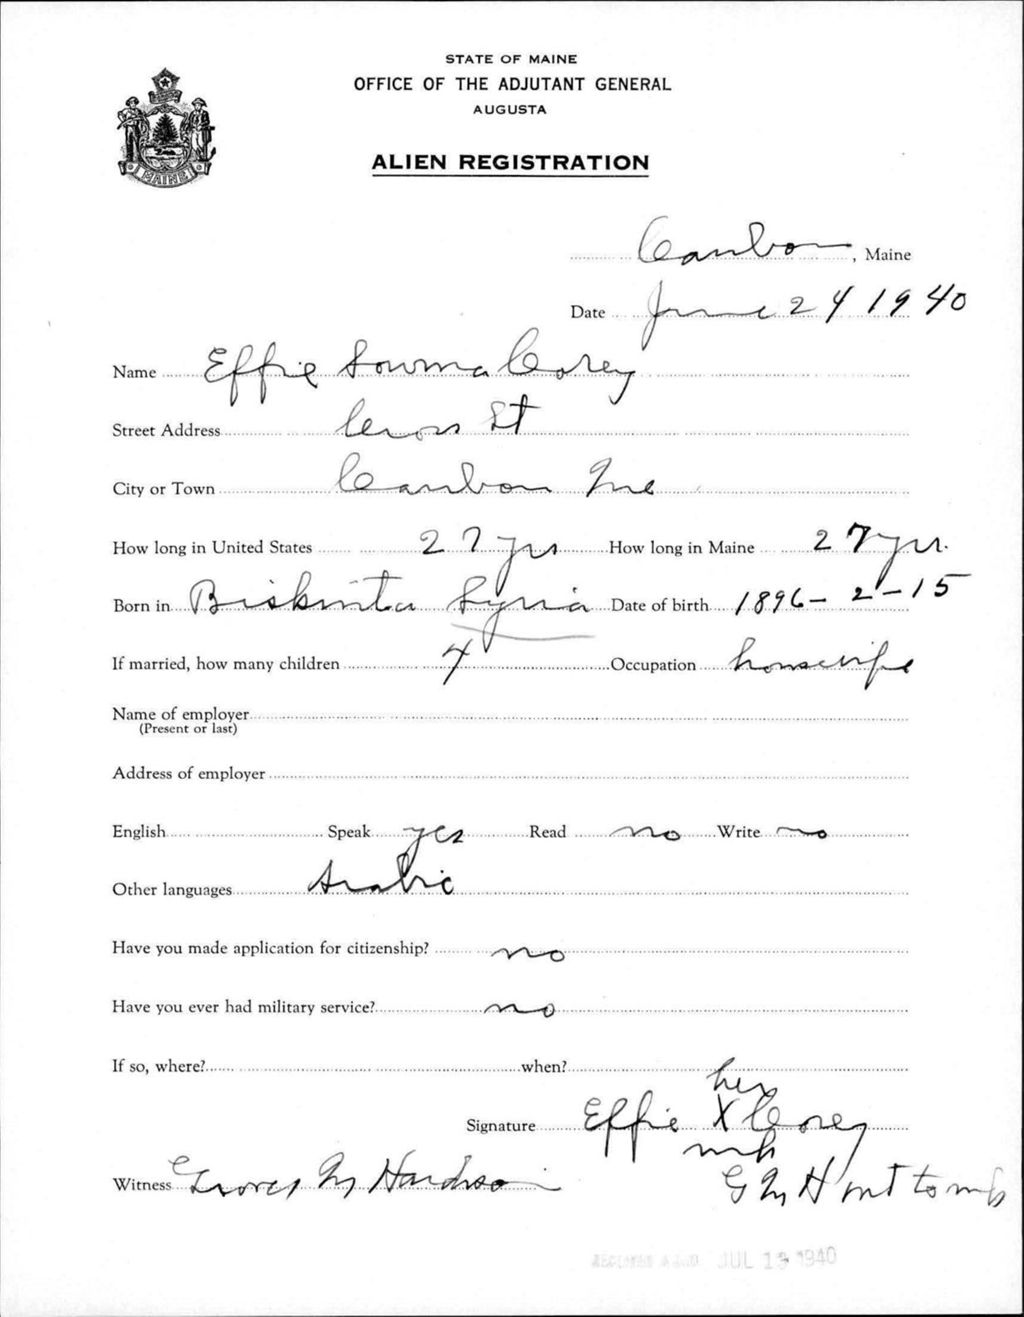 STATE OF MAINE
OFFICE OF THE ADJUTANT GENERAL
AUGUSTA
MAINE
ALIEN REGISTRATION
Caribou, Maine
Date June 24 1940
Name Effie Sowma Corey
Street Address Cross St
City or Town Caribou Me
How long in United States 27 yrs How long in Maine 27 yrs.
Born in Biskinta Syria Date of birth 1896-2-15
If married, how many children 4 Occupation housewife
Name of employer
(Present or last)
Address of employer
English Speak yes Read no Write no
Other languages Arabic
Have you made application for citizenship? no
Have you ever had military service? no
If so, where? when?
her
Signature Effie X Corey
mk
Witness M Hardison G M H to mk
JUL 13 1940